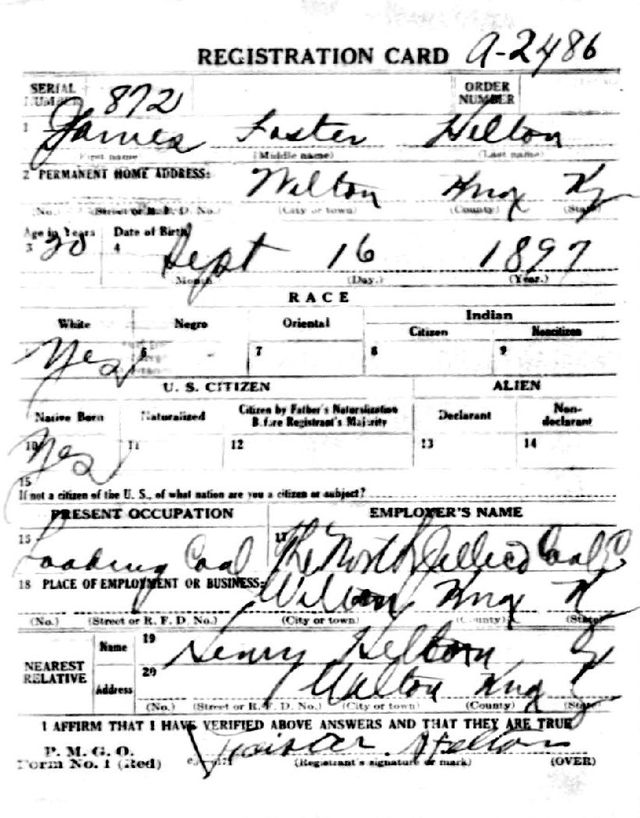 REGISTRATION CARD A-2486
SERIAL NUMBER 872 ORDER NUMBER
1 James Foster Helton
First name (Middle name) (Last name)
2 PERMANENT HOME ADDRESS: Wilton Knox Ky
(No.) (Street or R. F. D. No.) (City or town) (County) (State)
Age in Years Date of Birth
3 20 4 Sept 16 1897
Month (Day.) (Year.)
RACE
White Negro Oriental Indian
Citizen Noncitizen
Yes 6 7 8 9
U. S. CITIZEN ALIEN
Native Born Naturalized Citizen by Father's Naturalization Before Registrant's Majority Declarant Non-declarant
10 Yes 11 12 13 14
15
If not a citizen of the U. S., of what nation are you a citizen or subject?
PRESENT OCCUPATION EMPLOYER'S NAME
Loading Coal The North Jellico Coal C
18 PLACE OF EMPLOYMENT OR BUSINESS: Wilton Knox K
(No.) (Street or R. F. D. No.) (City or town) (County) (State)
NEAREST RELATIVE
Name 19 Henry Helton
Address 20 Wilton Knox
(No.) (Street or R. F. D. No.) (City or town) (County) (State)
I AFFIRM THAT I HAVE VERIFIED ABOVE ANSWERS AND THAT THEY ARE TRUE
P. M. G. O.
Form No. 1 (Red) Helton
(Registrant's signature or mark) (OVER)